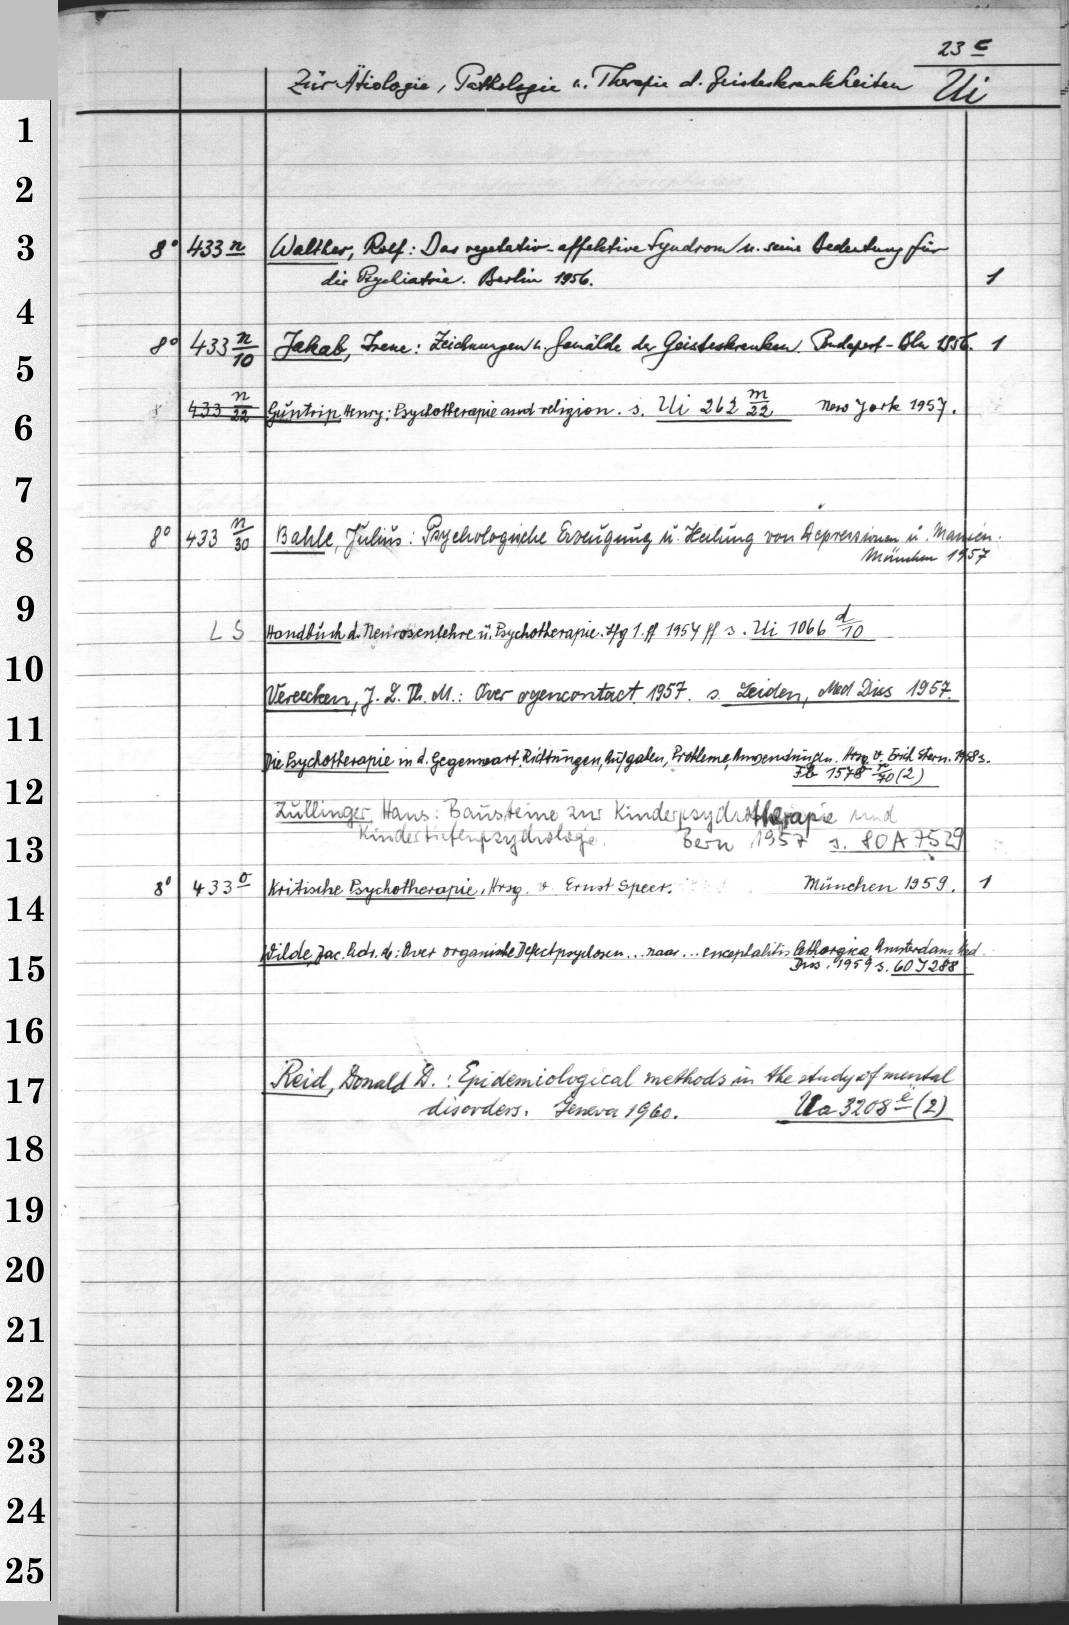 23 c
Zur Ätiologie, Pathologie u. Therapie d. Geisteskrankheiten Ui
1
2
3 8° 433 n Walther, Rolf: Das vegetativ-affektive Syndrom u. seine Bedeutung für
die Psychiatrie. Berlin 1956. 1
4
8° 433 n/10 Jakab, Irene: Zeichnungen u. Gemälde der Geisteskranken. Budapest-Bln 1956. 1
5
433 n/22 Guntrip, Henry: Psychotherapie and religion. s. Ui 262 m/22 New York 1957.
6
7
8° 433 n/30 Bahle, Julius: Psychologische Erzeugung u. Heilung von Depressionen u. Manien.
8 München 1957
9
L S Handbuch d. Neurosenlehre u. Psychotherapie. Lfg 1. ff 1957 ff s. Ui 1066 d/10
10
Vereecken, J. L. Th. M.: Over ogencontact 1957. s. Leiden, Med Diss 1957.
11
Die Psychotherapie in d. Gegenwart. Richtungen, Aufgaben, Probleme, Anwendungen. Hrsg. v. Erich Stern. 1958 s.
1578 n/70 (2)
12
Zullinger, Hans: Bausteine zur Kinderpsychotherapie und
Kindertiefenpsychologie. Bern 1957 s. 80 A 7529
13
8° 433 o Kritische Psychotherapie. Hrsg. v. Ernst Speer. München 1959. 1
14
Wilde, Jac. de: Over organische Defectpsychosen ... naar ... encephalitis lethargica. Amsterdam Med.
15 Diss. 1959 s. 60 J 288
16
Reid, Donald D.: Epidemiological methods in the study of mental
17 disorders. Geneva 1960. Ua 3208 e (2)
18
19
20
21
22
23
24
25